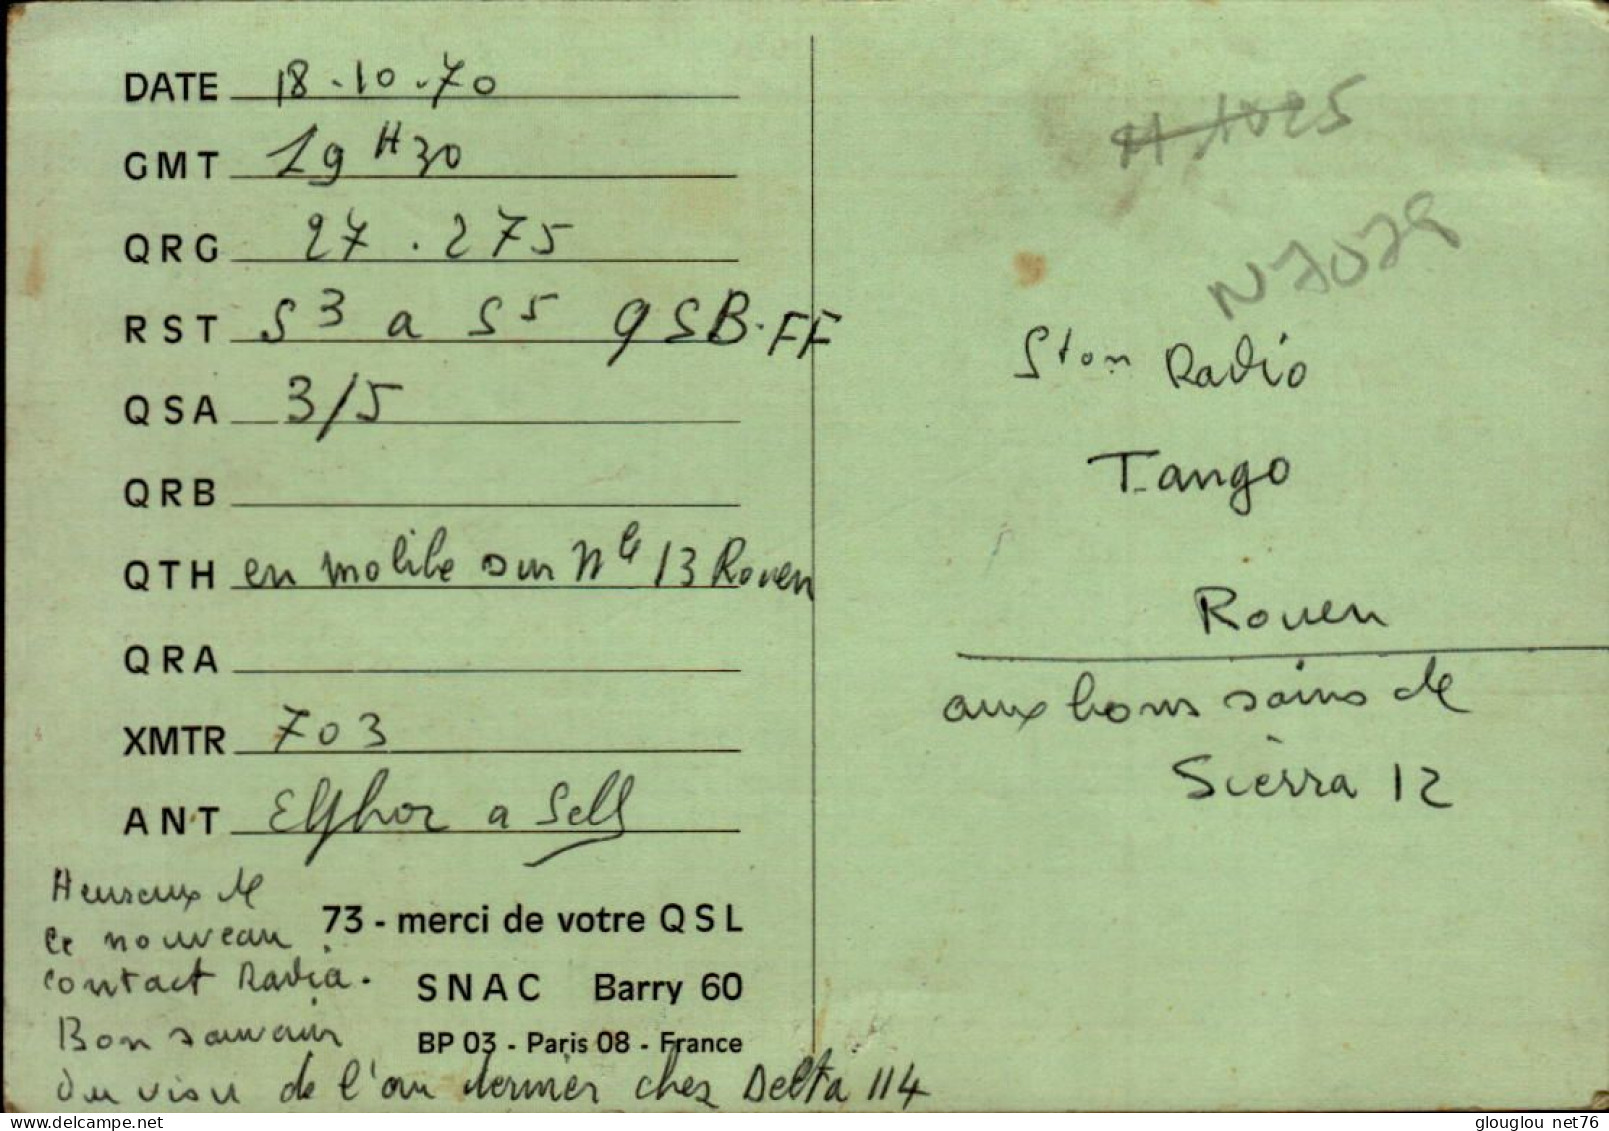 DATE 18.10.70
GMT 19 H30
QRG 27.275
RST S3 a S5 QSB.FF
QSA 3/5
QRB
QTH en mobile sur Nle 13 Rouen
QRA
XMTR 703
ANT a Self
Heureux de
ce nouveau
contact Radio.
Bon souvenir
de l'an dernier chez Delta 114
73 - merci de votre QSL
SNAC Barry 60
BP 03 - Paris 08 - France
N7079
Ston Radio
Tango
Rouen
aux bons soins de
Sierra 12
glouglou net76